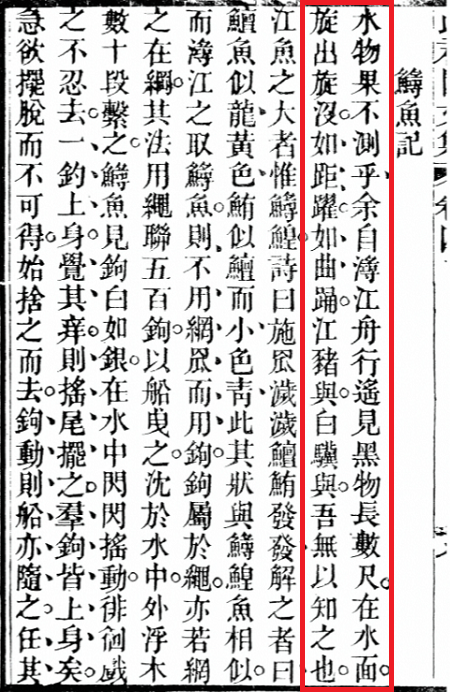 鱘魚記
水物果不測乎余自潯江舟行遙見黑物長數尺在水面
旋出旋沒如距躍如曲踊江豬與白驥與吾無以知之也
江魚之大者惟鱘鰉詩曰施罛濊濊鱣鮪發發解之者曰
鱣魚似龍黃色鮪似鱣而小色青此其狀與鱘鰉魚相似
而潯江之取鱘魚則不用網罛而用鉤鉤屬於繩亦若網
之在綱其法用繩聯五百鉤以船曳之沈於水中外浮木
數十段繫之鱘魚見鉤白如銀在水中閃閃搖動徘徊戲
之不忍去一鈎上身覺其痒則搖尾擺之羣鉤皆上身矣
急欲擺脫而不可得始捨之而去鉤動則船亦隨之任其